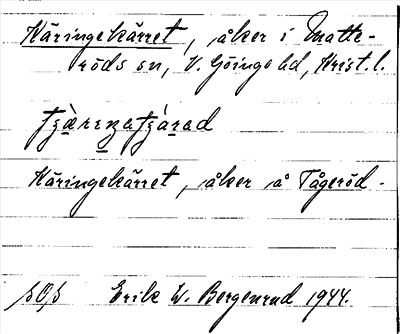 Käringekärret, åker i Matte-
röds sn, V. Göinge hd, Krist. l.
Käringekärret, åker å Tågeröd.
SOS Erik W. Bergenrud 1944.